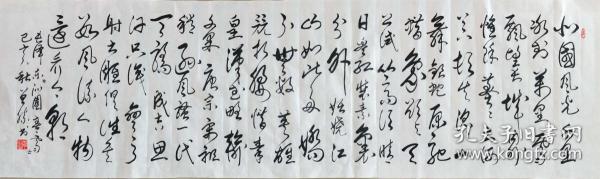 北國風光千里
冰封萬里雪
飄望長城內外
惟餘莽莽大河
上下頓失滔滔山
舞銀蛇原馳
蠟象欲與天
公試比高須晴
日看紅裝素裹
分外妖嬈江
山如此多嬌
引無數英雄
競折腰惜秦
皇漢武略輸
文采唐宗宋祖
稍遜風騷一代
天驕成吉思
汗只識彎弓
射大雕俱往矣
數風流人物
還看今朝
毛澤東沁園春雪詞
孔夫子旧书网